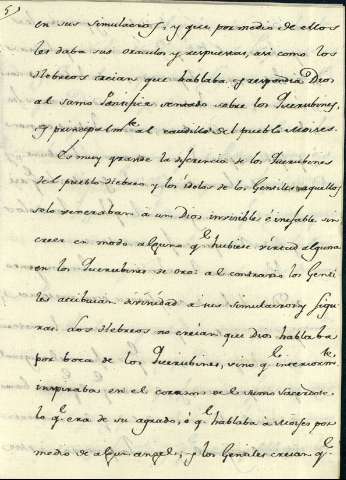 5)
en sus simulacros, y que por medio de ellos
les daba sus oraculos y respuestas, asi como los
Hebreos creian que hablaba y respondia Dios
al Sumo Pontifice sentado sobre los Querubines,
y principalmte. al caudillo del pueblo Moises.
Es muy grande la diferencia de los Querubines
del pueblo Hebreo y los idolos de los Gentiles: aquellos
solo veneraban à un Dios invisible è inefable sin
creer en modo alguno qe. hubiese virtud alguna
en los Querubines de oro: al contrario los Genti
les atribuian divinidad a sus simulacros y figu
ras. Los Hebreos no creian que Dios hablaba
por boca de los Querubines, sino qe. interiormte.
inspiraba en el corazon del sumo Sacerdote
lo qe. era de su agrado, ó qe. hablaba à Moises por
medio de algun angel; y los Gentiles creian qe.